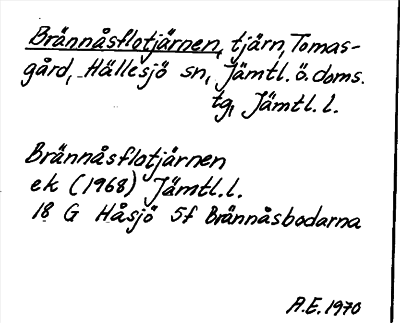 Brännåsflotjärnen, tjärn, Tomas-
gård, Hällesjö sn, Jämtl. ö. doms.
tg, Jämtl. l.
Brännåsflotjärnen
ek (1968) Jämtl. l.
18 G Håsjö 5f Brännåsbodarna
A.E. 1970